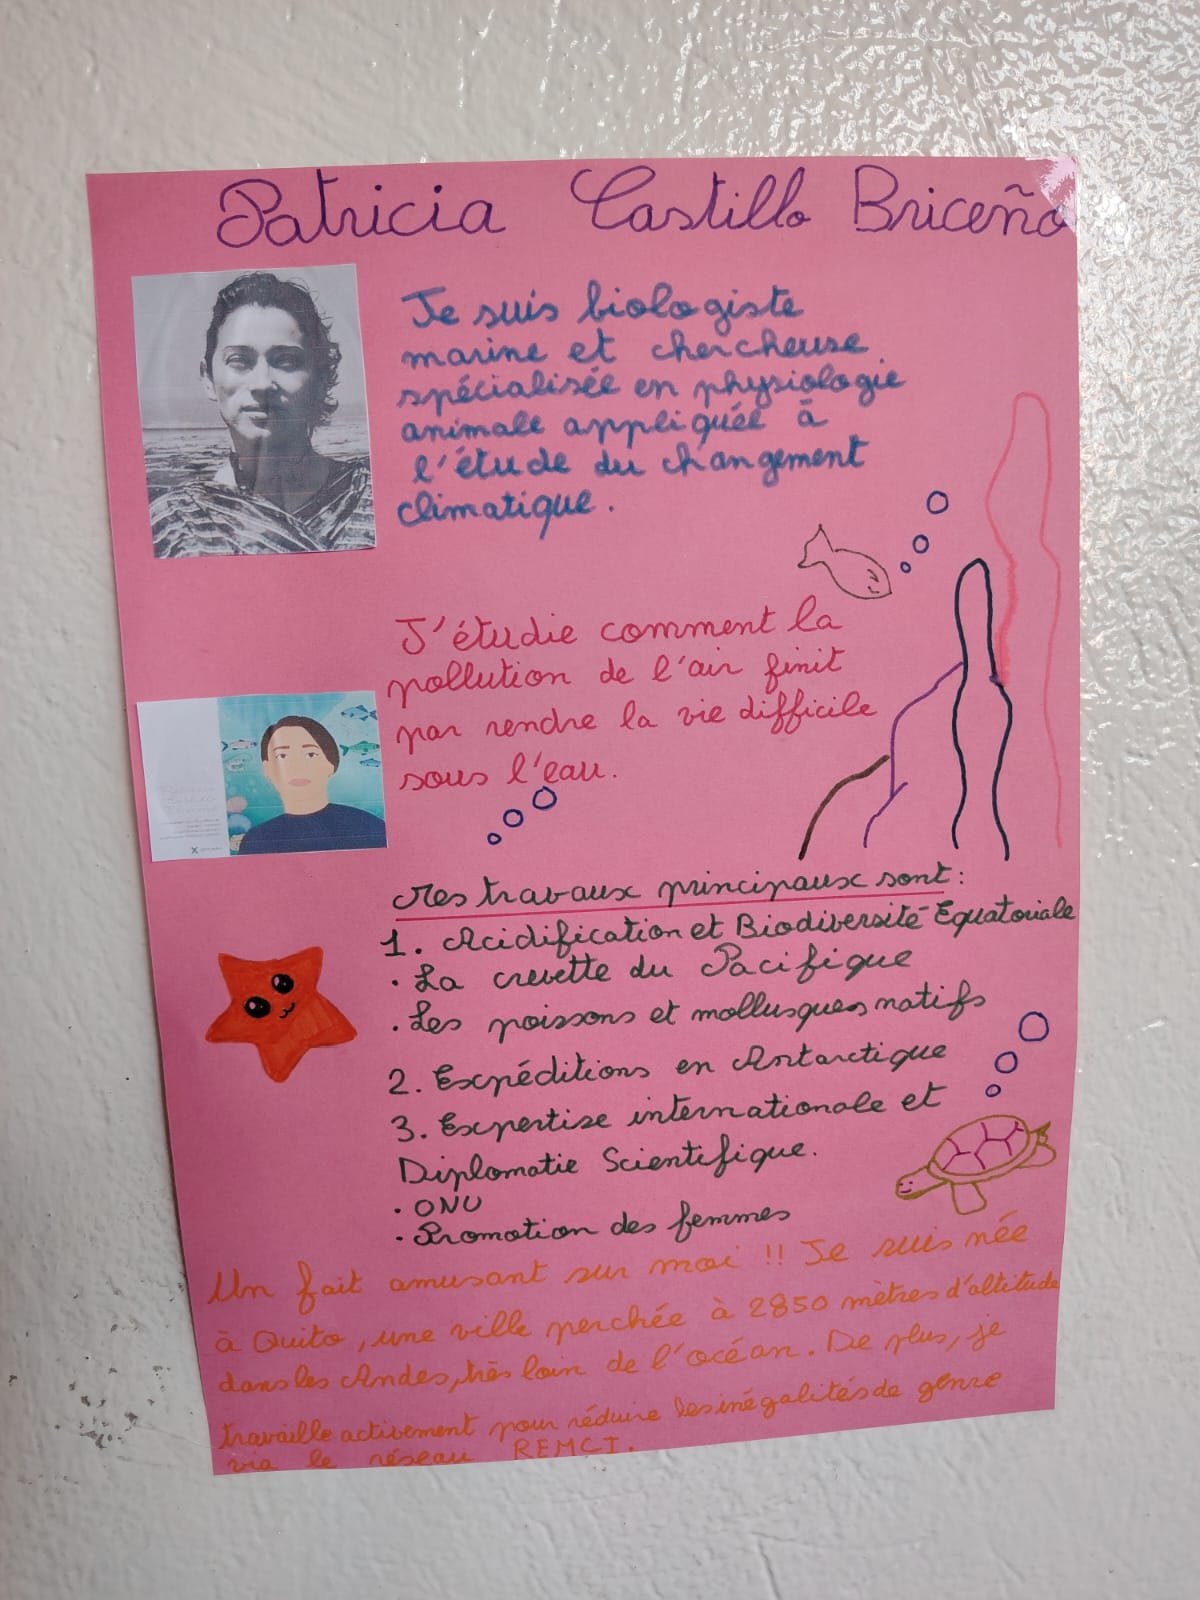 Patricia Castillo Briceño
Je suis biologiste
marine et chercheuse
spécialisée en physiologie
animale appliquée à
l'étude du changement
climatique.
J'étudie comment la
pollution de l'air finit
par rendre la vie difficile
sous l'eau.
Mes travaux principaux sont :
1. Acidification et Biodiversité Equatoriale
• La crevette du Pacifique
• Les poissons et mollusques natifs
2. Expéditions en Antarctique
3. Expertise internationale et
Diplomatie Scientifique.
• ONU
• Promotion des femmes
Un fait amusant sur moi !! Je suis née
à Quito, une ville perchée à 2850 mètres d'altitude
dans les Andes, très loin de l'océan. De plus, je
travaille activement pour réduire les inégalités de genre
via le réseau REMCI.